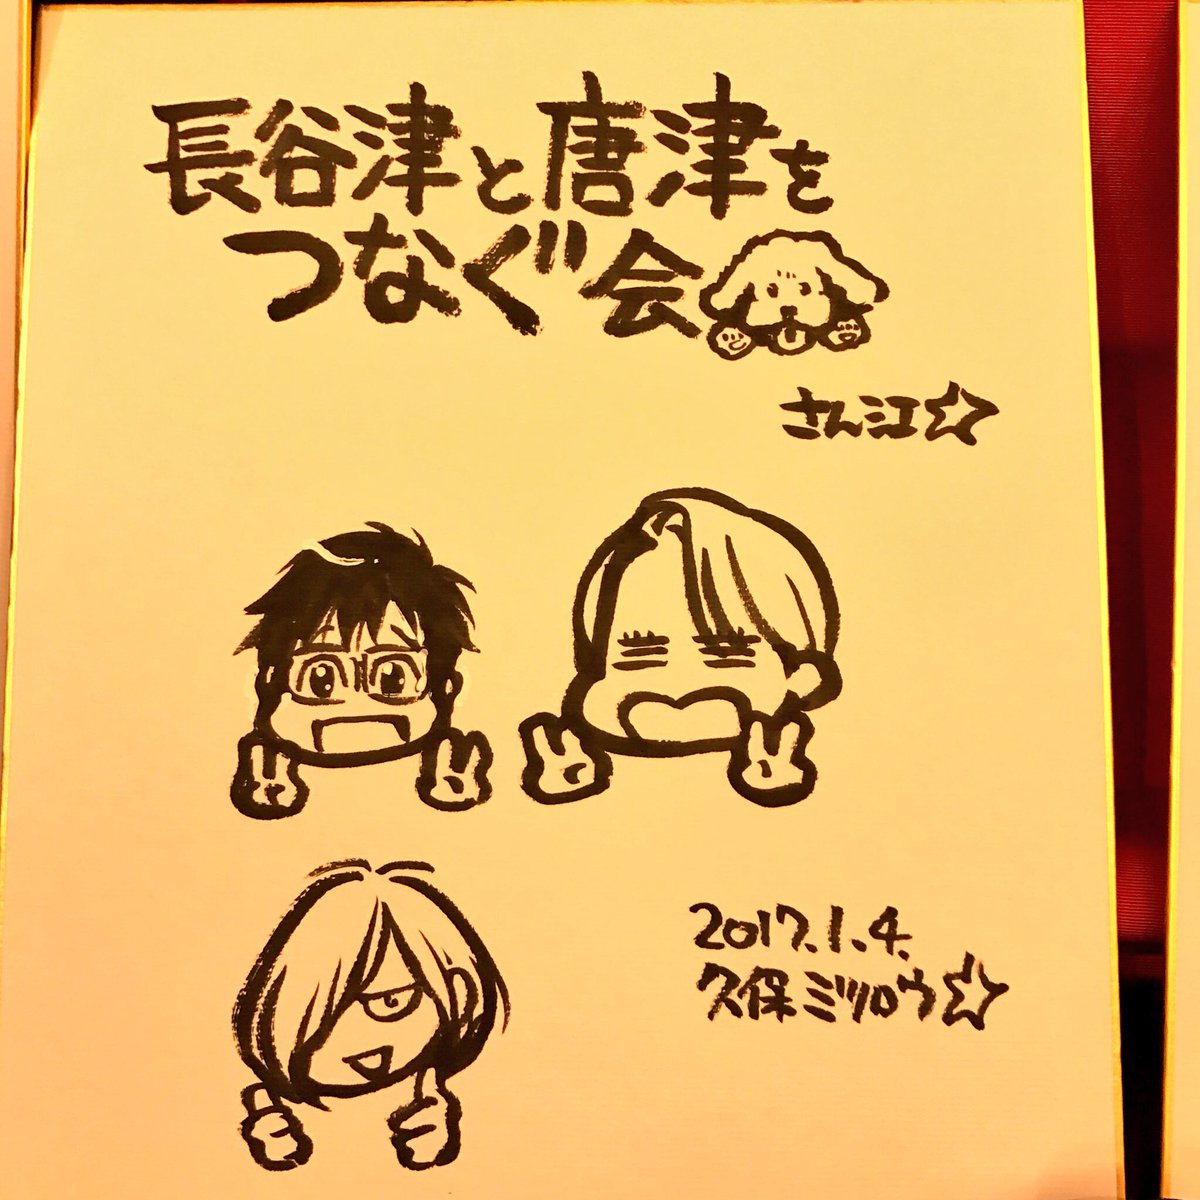 長谷津と唐津を
つなぐ会
さん江☆
2017.1.4.
久保ミツロウ☆